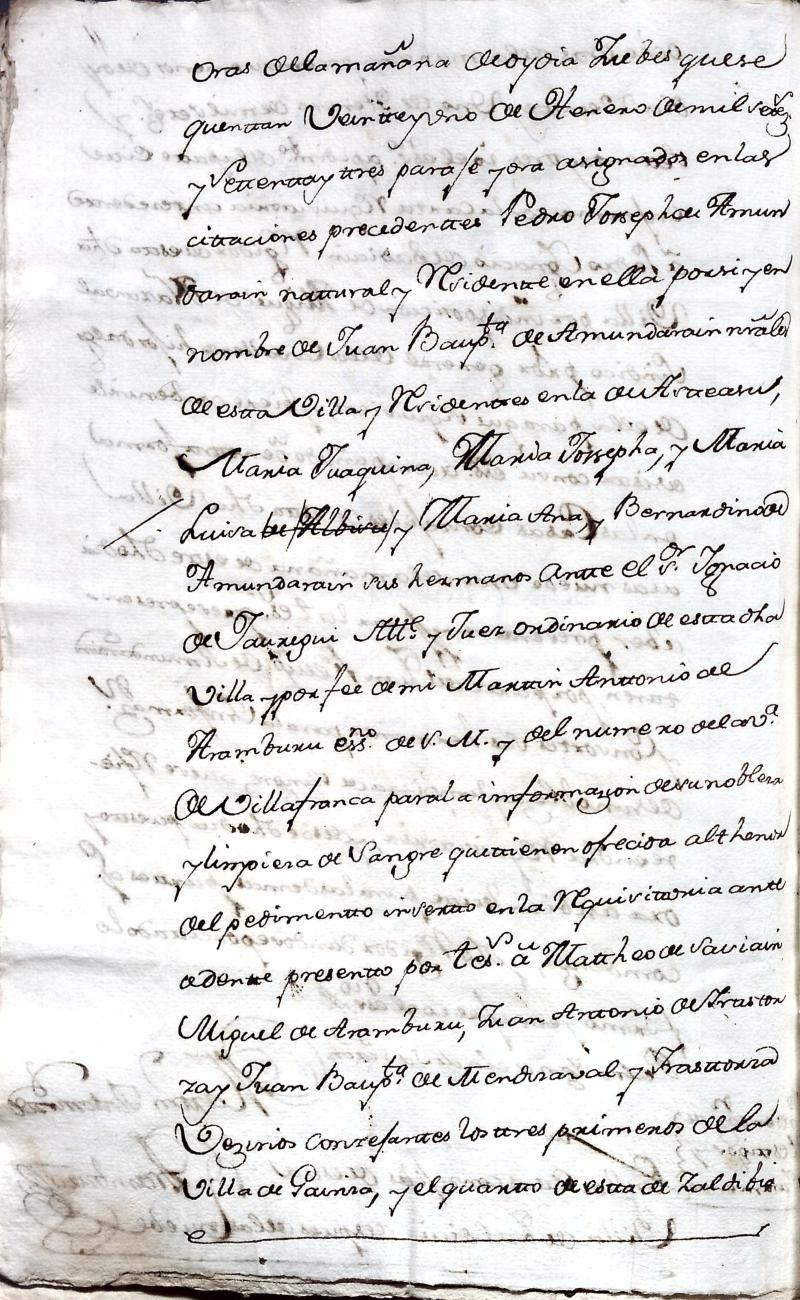 oras de la mañana de oy dia Juebes que se
quenttan Veintte y uno de Henero de mil settez.s
y Settentta y ttres para se y ora asignados en las
cittaciones precedenttes Pedro Josseph de Amun
darain natural y Residentte en ella por si y en
nombre de Juan Baup.ta de Amundarain nrãles
de estta Villa y Residenttes en la de Astteasu,
Maria Juaquina, Maria Jossepha, y Maria
Luisa de Albisu y Maria Ana, y Bernardino de
Amundarain sus hermanos Antte el s.or Ignacio
de Jauregui Alld.e y Juez ordinario de estta dha
Villa y por fee de mi Marttin Anttonio de
Aramburu ess.no de S. M. y del numero de la V.a
de Villafranca para la informazon de su nobleza
y limpieza de Sangre que ttienen ofrecida al thenor
del pedimentto insertto en la Requisittoria antte
zedentte presentto por tes.s a Mattheo de Saviain
Miguel de Aramburu, Juan Antonio de Irastor
za y Juan Baup.ta de Mendizaval y Irasttorza
Vezinos Contesanttes los ttres primeros de la
Villa de Gainza, y el quartto de estta de Zaldibia